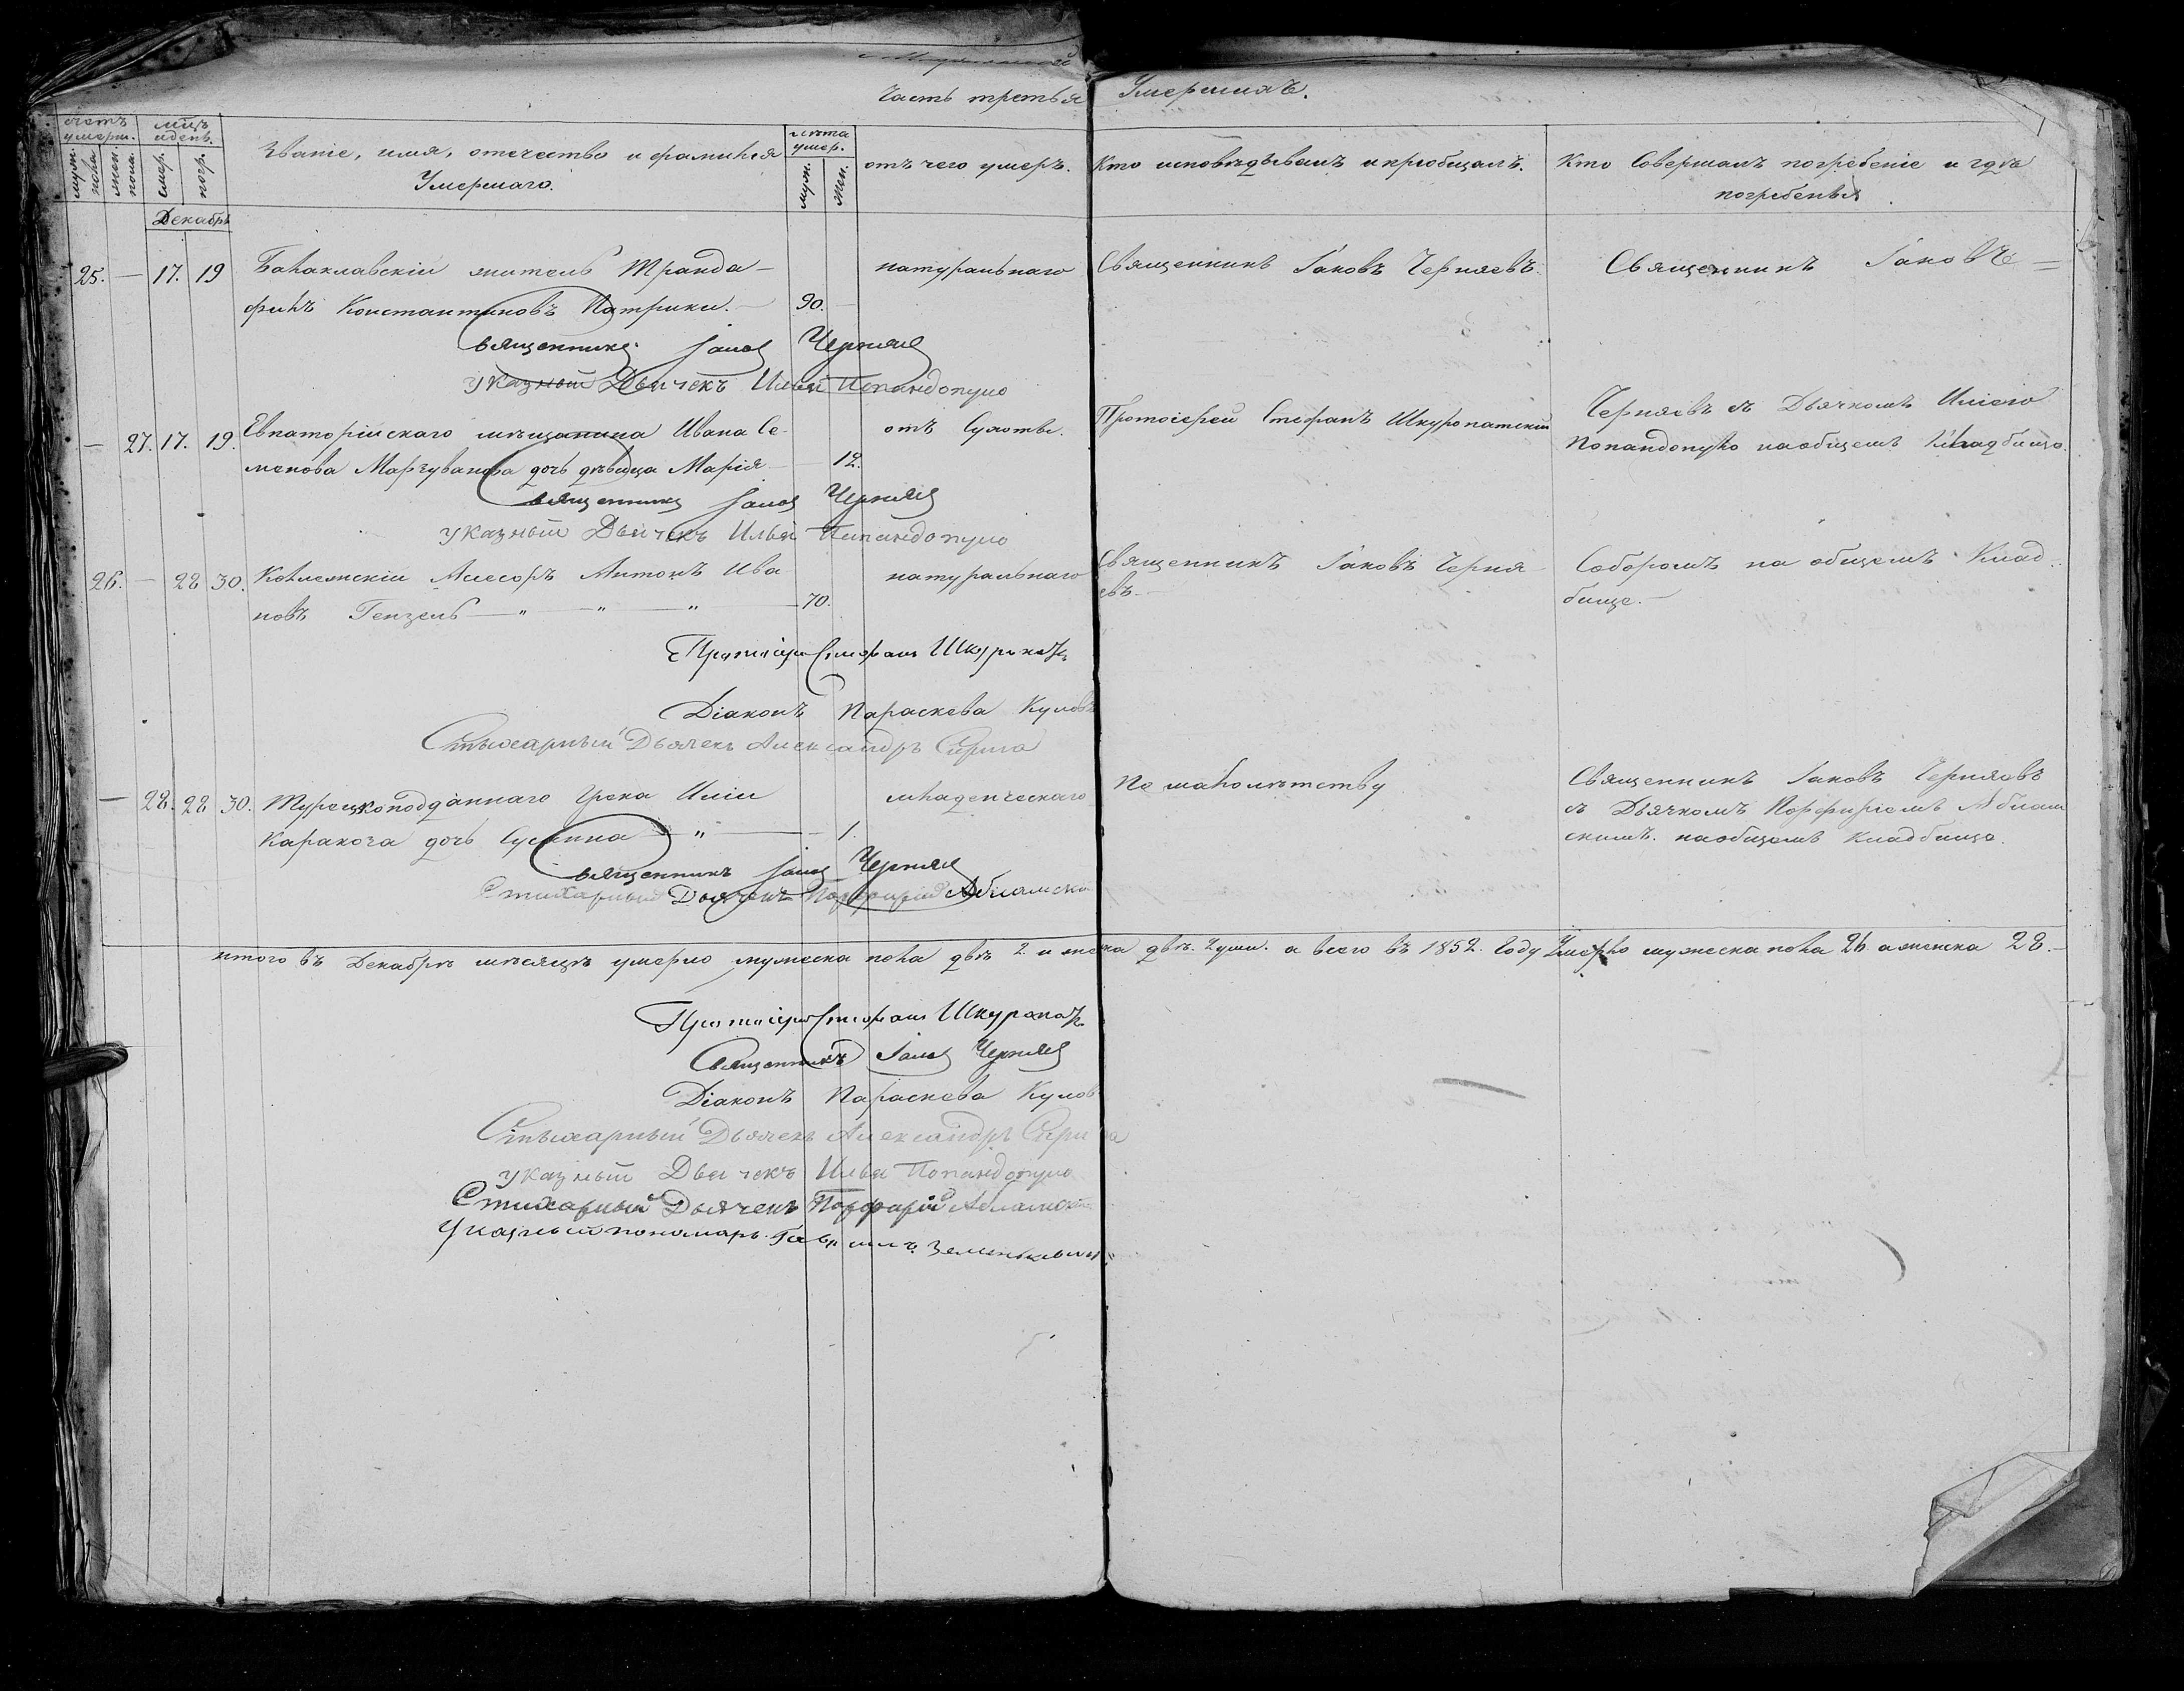 Часть третья Умершихъ.
счетъ умерш. мѣц. и день. Званіе, имя, отечество и фамилія Умершаго. лѣта умер. отъ чего умеръ. Кто исповѣдывалъ и пріобщалъ. Кто Совершалъ погребеніе и гдѣ погребены
муж. пола жен. пола. умер. погр. муж. жен.
Декабрь
25. — 17. 19 Балаклавскій житель Транда- натуральнаго Священникъ Іаковъ Черняевъ. Священникъ Іаковъ =
филъ Константиновъ Патрики. — 90. —
Священникъ Іаковъ Черняев
указный Дьячекъ Илья Попандопуло
Черняевъ съ Дьячкомъ Иліею
— 27. 17. 19. Евпаторійскаго мѣщанина Ивана Се- отъ Сухотъ. Протоіерей Стефанъ Шкуропатскій
Попандопуло на общемъ Кладбище.
менова Маргуванова дочь дѣвица Марія — 12.
Священникъ Іаковъ Черняев
указный Дьячекъ Илья Попандопуло
26. — 28 30. Коллежскій Асесоръ Антонъ Ива- натуральнаго Священникъ Іаковъ Черня- Соборомъ на общемъ Клад-
новъ Гензель — " — " — " — 70. евъ. — бище. —
Протоіерей Стефанъ Шкуропат
Діаконъ Параскева Кулов
Стихарный Дьячекъ Александръ
— 28. 28 30. Турецкоподданнаго Грека Иліи младенческаго По малолѣтству Священникъ Іаковъ Черняевъ
съ Дьячкомъ Порфиріемъ Абламскимъ
Каракоча дочь Сусанна — " — 1.
скимъ. на общемъ Кладбище.
Священникъ Іаковъ Черняев
Стихарный Дьячекъ Порфирій Абламскій
итого въ Декабрѣ мѣсяцѣ умерло мужеска пола двѣ 2 и женска двѣ. 2 души. а всего въ 1852. Году Умерло мужеска пола 26 а женска 28. —
Протоіерей Стефанъ Шкуропат
Священникъ Іаковъ Черняев
Діаконъ Параскева Кулов
Стихарный Дьячекъ Александръ
указный Дьячекъ Илья Попандопуло
Стихарный Дьячекъ Порфирій Абламскій
Указный пономарь Гавріилъ